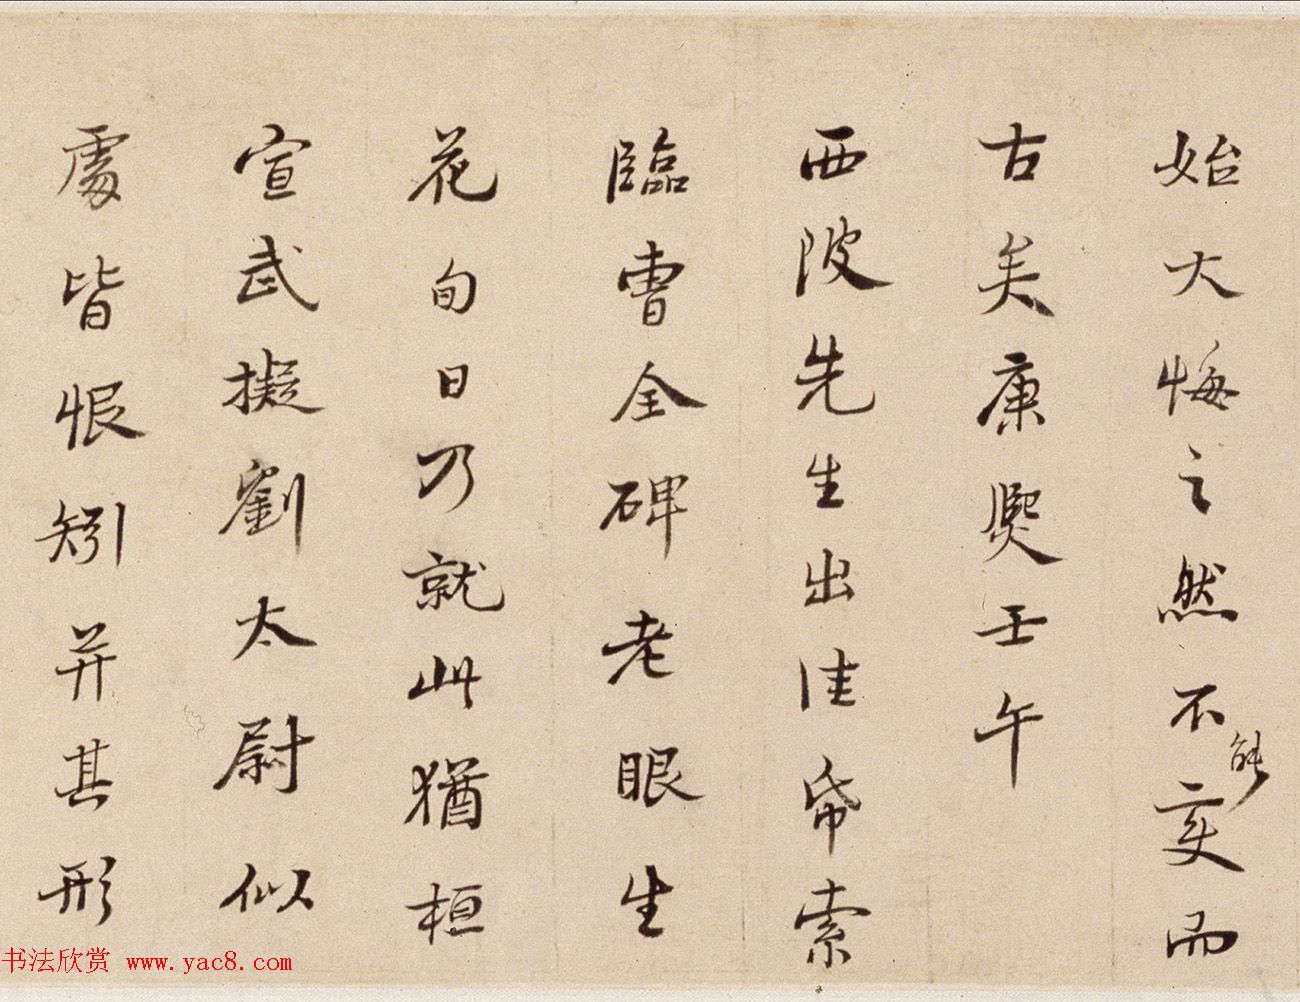 始大悔之然不能変而
古矣康熙壬午
西陂先生出佳帋索
臨曹全碑老眼生
花旬日乃就此猶桓
宣武擬劉太尉似
處皆恨矧并其形
书法欣赏 www.yac8.com